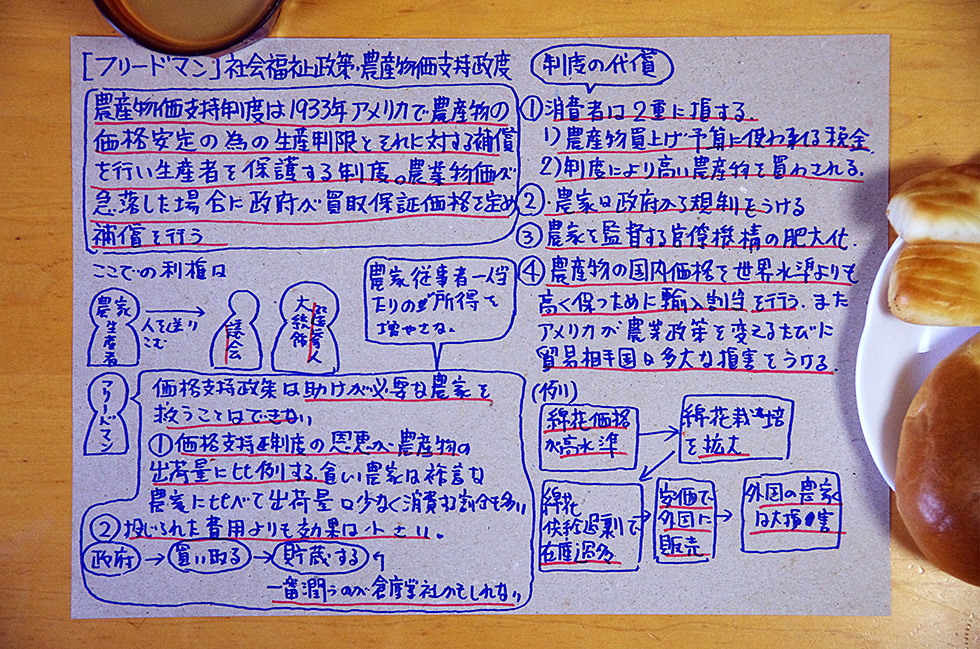 [フリードマン]社会福祉政策・農産物価支持政度
農産物価支持制度は1933年アメリカで農産物の
価格安定の為の生産制限とそれに対する補償
を行い生産者を保護する制度。農業物価が
急落した場合に政府が買取保証価格を定め
補償を行う
ここでの利権は
農家
生産者
人を送り
こむ
議会
大統領
農家従事者一人当
たりの所得を
増やさな。
フリードマン
価格支持政策は助けが必要な農家を
救うことはできない
①価格支持制度の恩恵が農産物の
出荷量に比例する。貧しい農家は裕富な
農家に比べて出荷量は少なく消費する割合も多い
②投じられた費用よりも効果は小さい。
政府→買い取る→貯蔵する
一番潤うのが倉庫会社かもしれない
制度の代償
①消費者は2重に損する。
1)農産物買上げ予算に使われる税金
2)制度により高い農産物を買わされる.
②・農家は政府から規制をうける
③農家を監督する官僚機構の肥大化.
④農産物の国内価格を世界水準よりも
高く保つために輸入割当を行う.また
アメリカが農業政策を変えるたびに
貿易相手国は多大な損害をうける.
(例)
綿花価格
が高水準
綿花栽培
を拡大
綿花
供給過剰で
在庫過多
安価で
外国に
販売
外国の農家
は大損害